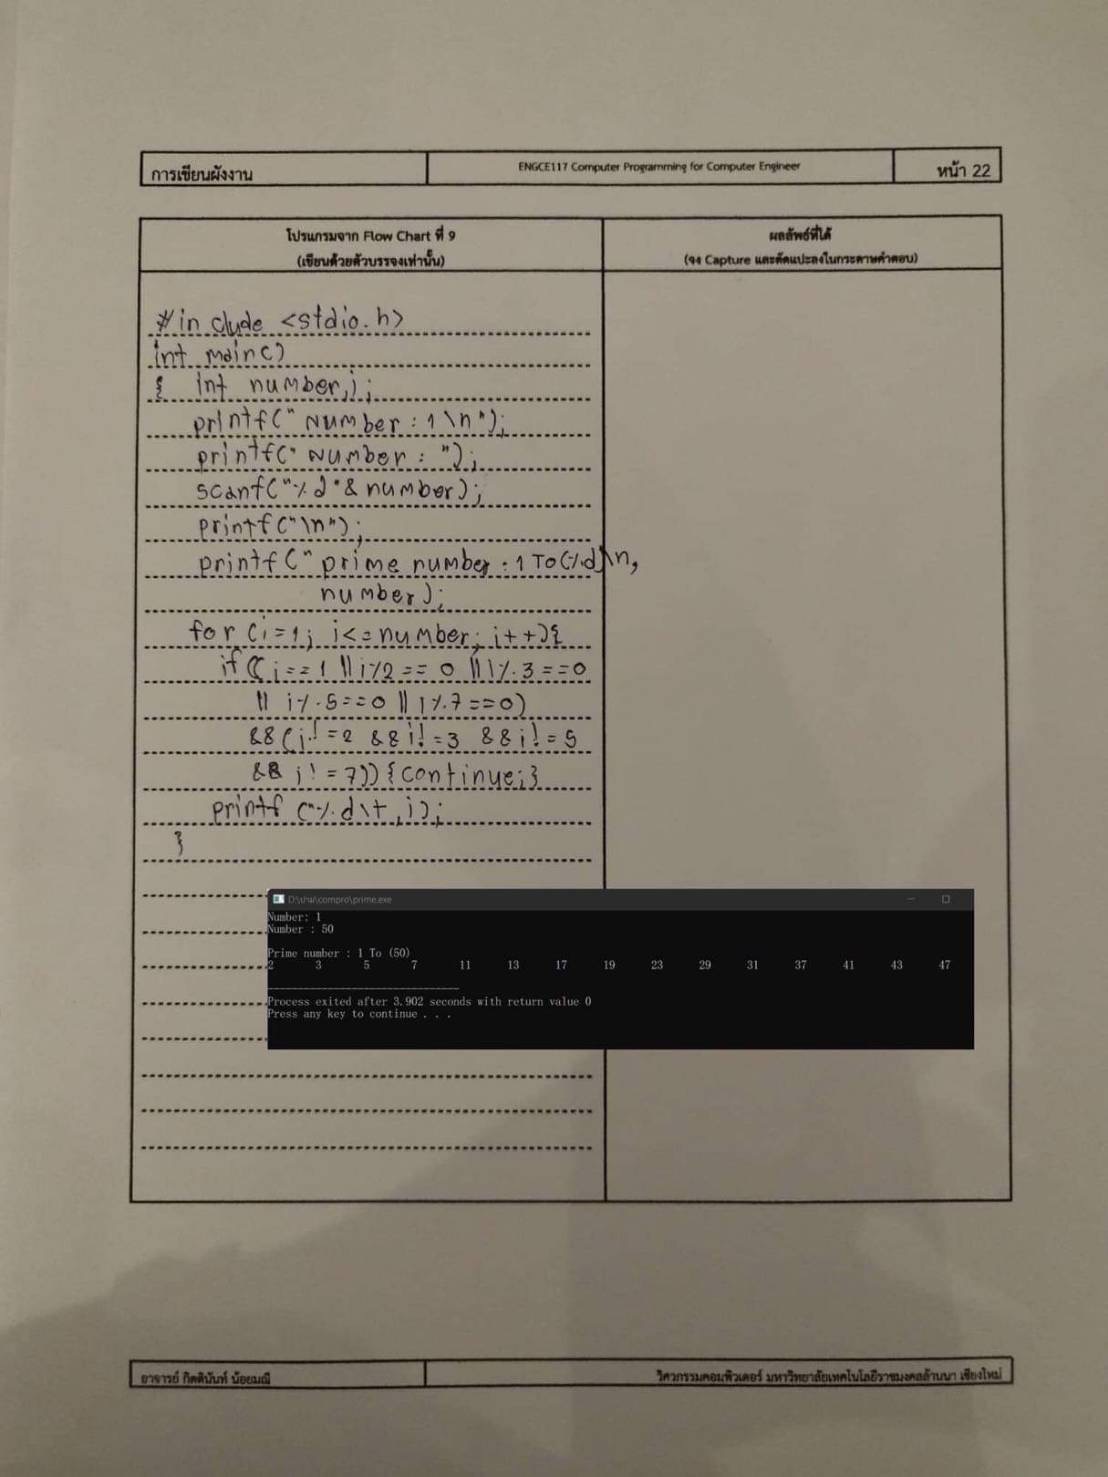 การเขียนผังงาน
ENGCE117 Computer Programming for Computer Engineer
หน้า 22
โปรแกรมจาก Flow Chart ที่ 9
(เขียนด้วยตัวบรรจงเท่านั้น)
ผลลัพธ์ที่ได้
(จง Capture และตัดแปะลงในกระดาษคำตอบ)
#include <stdio.h>
int main()
{ int number,i;
printf(" Number : 1 \n");
printf(" Number : ");
scanf("%d"& number);
printf("\n");
printf(" prime number : 1 To (%d)\n,
number);
for (i=1; i<=number; i++){
if((i==1 || i%2 == 0 || i%3==0
|| i%5==0 || i%7==0)
&&(i!=2 && i!=3 && i!=5
&& i!=7)){continue;}
printf ("%d\t,i);
}
prime.exe
Number: 1
Number : 50
Prime number : 1 To (50)
2 3 5 7 11 13 17 19 23 29 31 37 41 43 47
--------------------------------
Process exited after 3.902 seconds with return value 0
Press any key to continue . . .
อาจารย์ กิตตินันท์ น้อยมณี
วิศวกรรมคอมพิวเตอร์ มหาวิทยาลัยเทคโนโลยีราชมงคลล้านนา เชียงใหม่